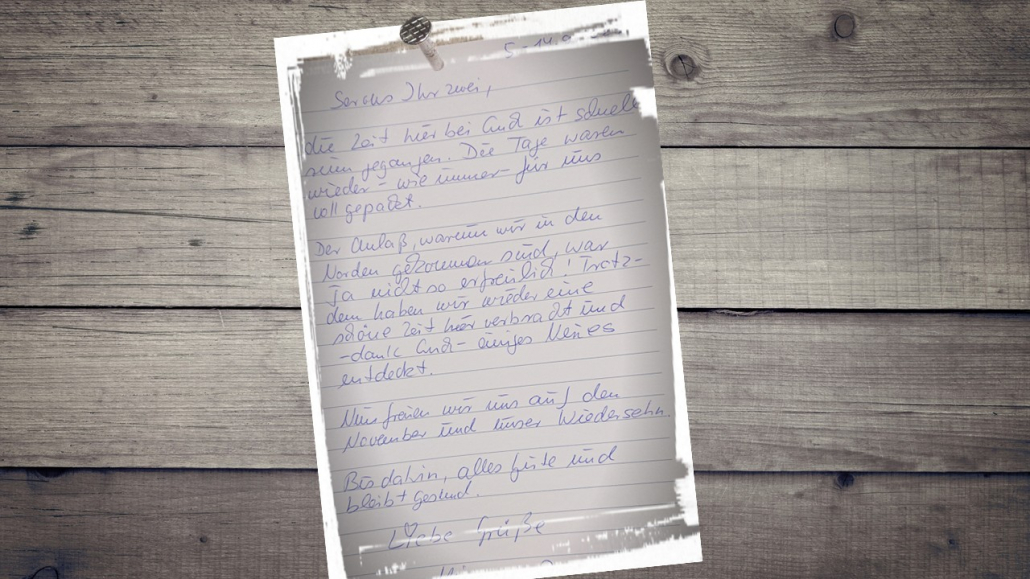 5.-14.
Servus Ihr zwei,
die Zeit hier bei Euch ist schnell
rum gegangen. Die Tage waren
wieder - wie immer - für uns
voll gepackt.
Der Anlaß, warum wir in den
Norden gekommen sind, war
ja nicht so erfreulich! Trotz-
dem haben wir wieder eine
schöne Zeit hier verbracht und
-dank Euch- einiges Neues
entdeckt.
Nun freuen wir uns auf den
November und unser Wiedersehn.
Bis dahin, alles Gute und
bleibt gesund.
Liebe Grüße